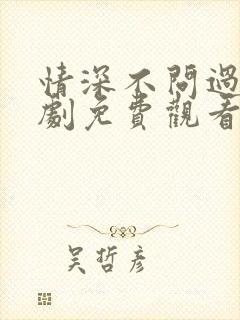 情深不問過
劇免費觀看
吳哲彥